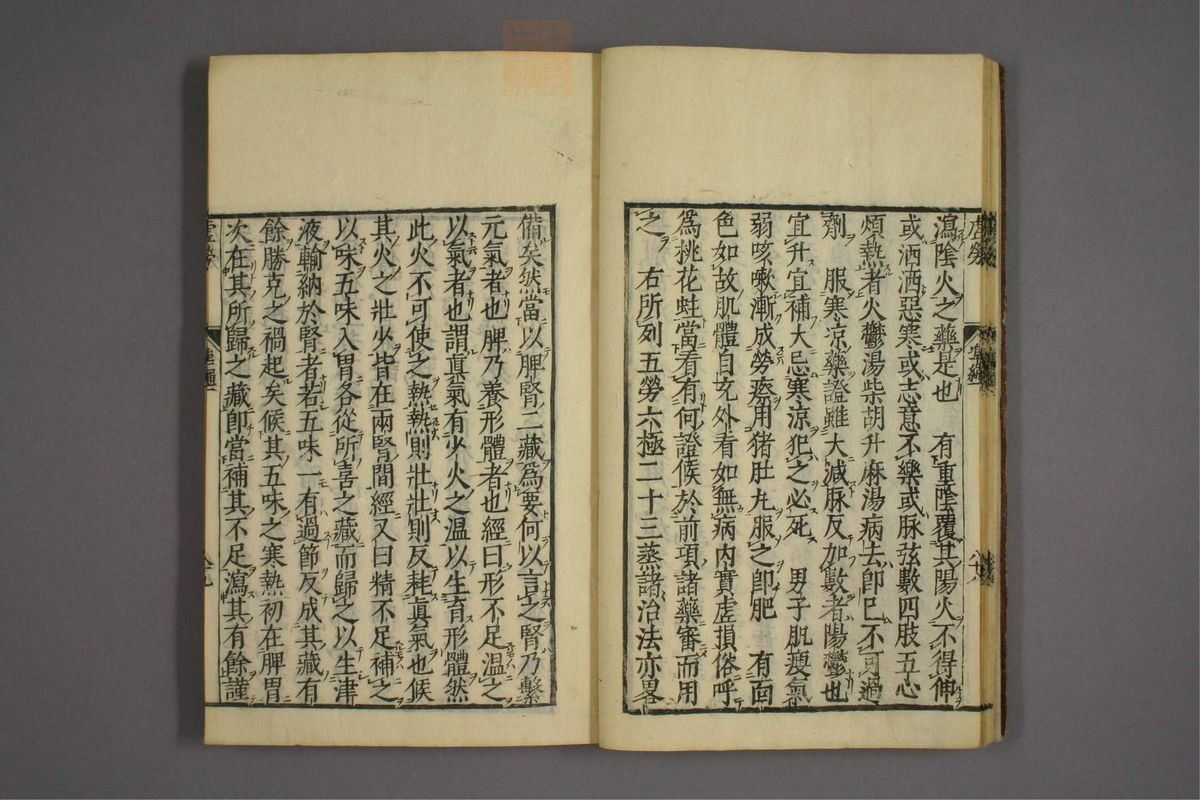 瀉陰火之藥是也　有重陰覆其陽火不得伸
或洒洒惡寒或志意不樂或脉弦數四肢五心
煩熱者火鬱湯柴胡升麻湯病去即已不可過
劑　服寒凉藥證雖大減脉反加數者陽鬱也
宜升宜補大忌寒凉犯之必死　男子肌瘦氣
弱咳嗽漸成勞瘵用猪肚丸服之即肥　有面
色如故肌體自充外看如無病内實虚損俗呼
爲桃花蛀當看有何證候於前項諸藥審而用
之　右所列五勞六極二十三蒸諸治法亦畧
備矣然當以脾腎二藏爲要何以言之腎乃繫
元氣者也脾乃養形體者也經曰形不足温之
以氣氣者也謂眞氣有少火之温以生育形體然
此火不可使之熱熱則壯壯則反耗眞氣也候
其火之壯少皆在兩腎間經又曰精不足補之
以味五味入胃各從所喜之藏而歸之以生津
液輸納於腎者若五味一有過節反成其藏有
餘勝克之禍起矣候其五味之寒熱初在脾胃
次在其所歸之藏即當補其不足瀉其有餘謹